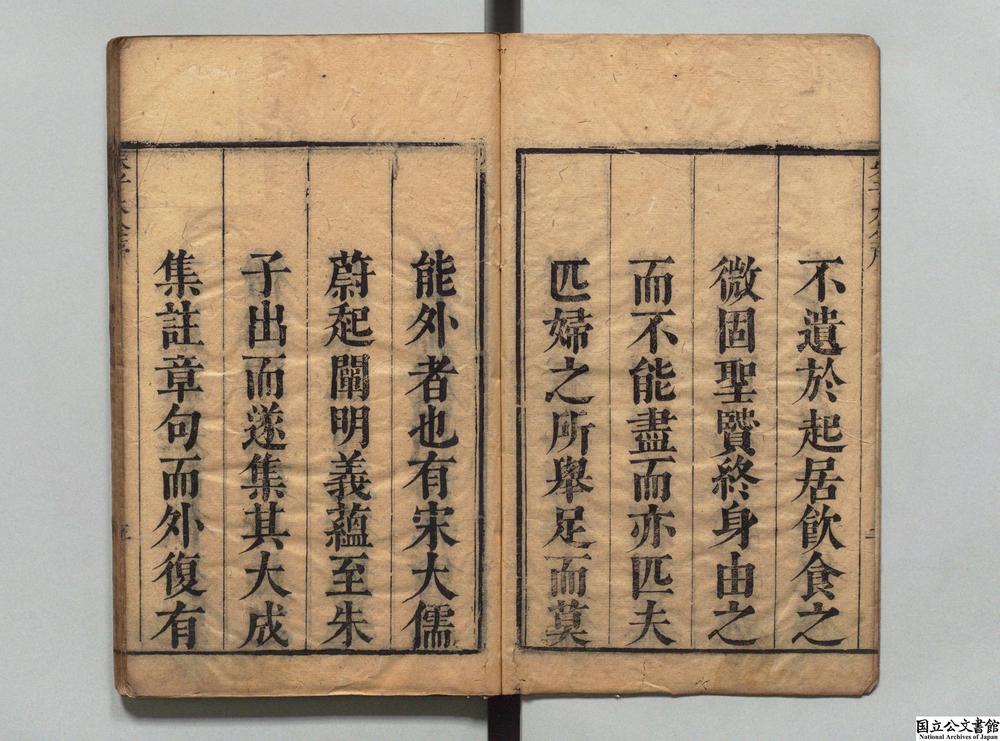 不遺於起居飲食之
微固聖賢終身由之
而不能盡而亦匹夫
匹婦之所舉足而莫
能外者也有宋大儒
蔚起闡明義蘊至朱
子出而遂集其大成
集註章句而外復有
国立公文書館
National Archives of Japan